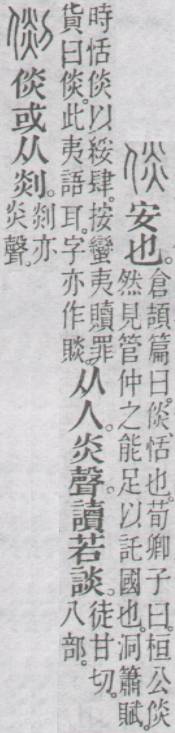 倓安也。倉頡篇曰。倓、恬也。荀卿子曰。桓公倓
然見管仲之能足以託國也。洞簫賦。
時恬倓以綏肆。按蠻夷贖罪
貨曰倓。此夷語耳。字亦作賧。
从人。炎聲。讀若談。徒甘切。
八部。
倓或从剡。剡亦
炎聲。